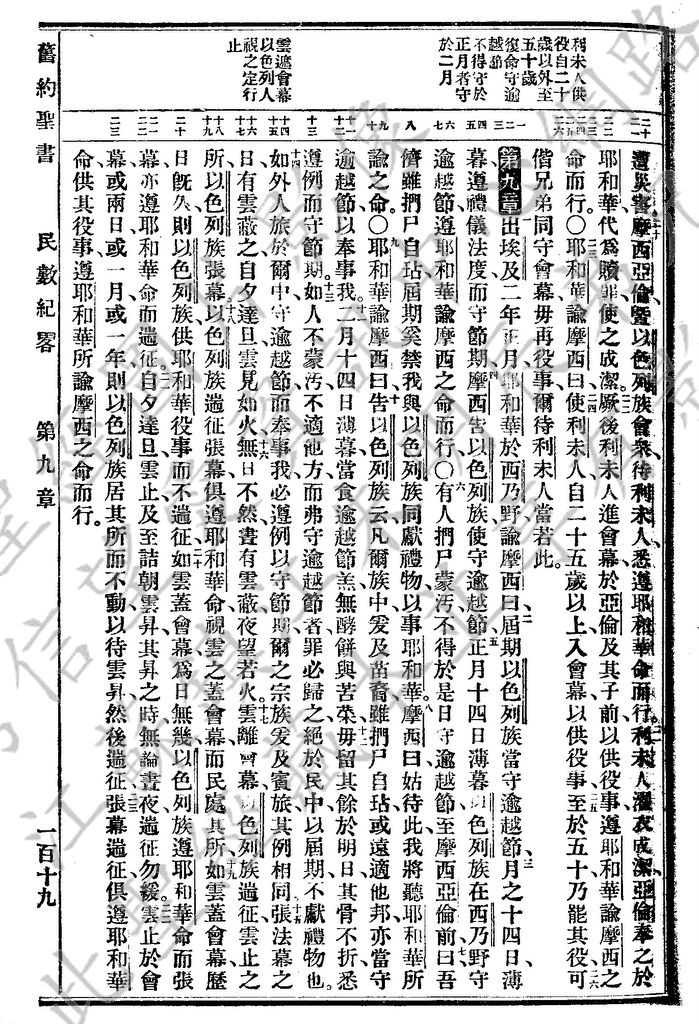 利未人供
役自二十
歲以外至
五十歲
復命守逾
越節
不得守於
正月者守
於二月
雲遮會幕
以色列人
視之定行
止
遭災害摩西亞倫曁以色列族會衆待利未人悉遵耶和華命而行利未人濯衣成潔亞倫奉之於
耶和華代爲贖罪使之成潔厥後利未人進會幕於亞倫及其子前以供役事遵耶和華諭摩西之
命而行〇耶和華諭摩西曰使利未人自二十五歲以上入會幕以供役事至於五十乃罷其役可
偕兄弟同守會幕毋再役事爾待利未人當若此
第九章出埃及二年正月耶和華於西乃野諭摩西曰屆期以色列族當守逾越節月之十四日薄
暮遵禮儀法度而守節期摩西吿以色列族使守逾越節正月十四日薄暮以色列族在西乃野守
逾越節遵耶和華諭摩西之命而行〇有人捫尸蒙污不得於是日守逾越節至摩西亞倫前曰吾
儕雖捫尸自玷屆期奚禁我與以色列族同獻禮物以事耶和華摩西曰姑待此我將聽耶和華所
諭之命〇耶和華諭摩西曰吿以色列族云凡爾族中爰及苗裔雖捫尸自玷或遠適他邦亦當守
逾越節以奉事我二月十四日薄暮當食逾越節羔無酵餅與苦菜毋留其餘於明日其骨不折悉
遵例而守節期如人不蒙污不適他方而弗守逾越節者罪必歸之絕於民中以屆期不獻禮物也
如外人旅於爾中守逾越節而奉事我必遵例以守節期爾之宗族爰及賓旅其例相同張法幕之
日有雲蔽之自夕達旦雲見如火無日不然晝有雲蔽夜望若火雲離會幕以色列族遄征雲止之
所以色列族張幕以色列族遄征張幕俱遵耶和華命視雲之蓋會幕而民處其所如雲蓋會幕歷
日旣久則以色列族供耶和華役事而不遄征如雲蓋會幕爲日無幾以色列族遵耶和華命而張
幕亦遵耶和華命而遄征自夕達旦雲止及至詰朝雲昇其昇之時無論晝夜遄征勿緩雲止於會
幕或兩日或一月或一年則以色列族居其所而不動以待雲昇然後遄征張幕遄征俱遵耶和華
命供其役事遵耶和華所諭摩西之命而行。
舊約聖書 民數紀畧 第九章 一百十九